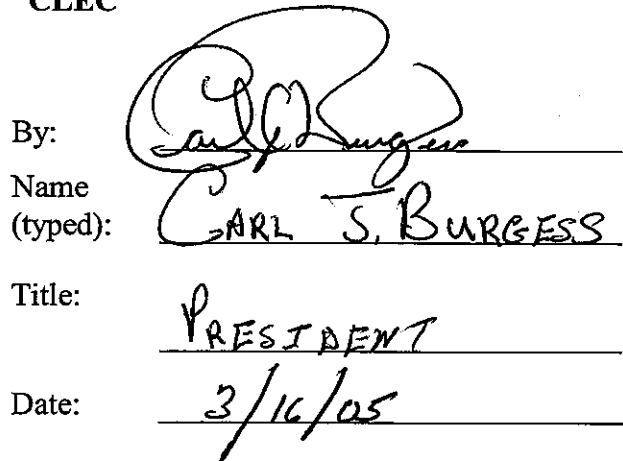 CLEC
By: Carl J. Burgess
Name
(typed): CARL J. BURGESS
Title: PRESIDENT
Date: 3/16/05